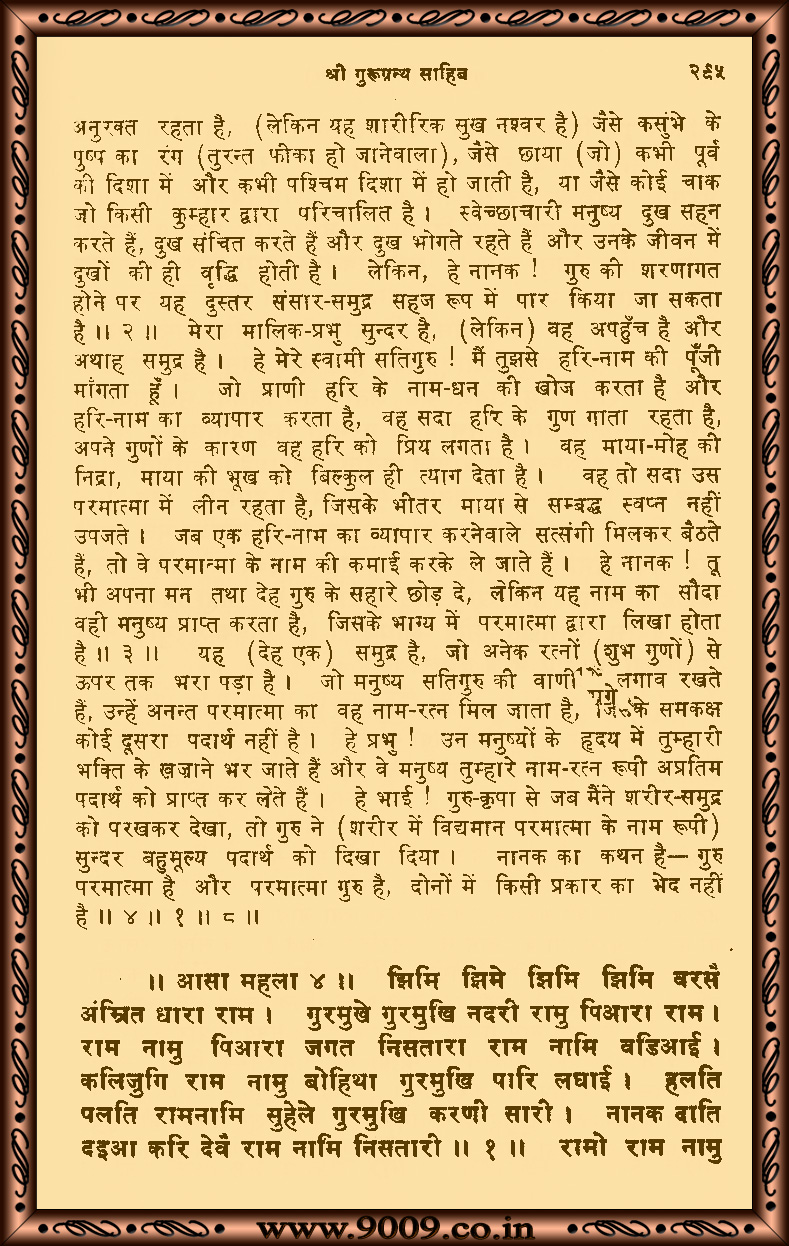 श्री गुरूग्रन्थ साहिब २९५
अनुरक्त रहता है, (लेकिन यह शारीरिक सुख नश्वर है) जैसे कसुंभे के
पुष्प का रंग (तुरन्त फीका हो जानेवाला), जैसे छाया (जो) कभी पूर्व
की दिशा में और कभी पश्चिम दिशा में हो जाती है, या जैसे कोई चाक
जो किसी कुम्हार द्वारा परिचालित है। स्वेच्छाचारी मनुष्य दुख सहन
करते हैं, दुख संचित करते हैं और दुख भोगते रहते हैं और उनके जीवन में
दुखों की ही वृद्धि होती है। लेकिन, हे नानक ! गुरु की शरणागत
होने पर यह दुस्तर संसार-समुद्र सहज रूप में पार किया जा सकता
है ॥ २ ॥ मेरा मालिक-प्रभु सुन्दर है, (लेकिन) वह अपहुँच है और
अथाह समुद्र है। हे मेरे स्वामी सतिगुरु ! मैं तुझसे हरि-नाम की पूँजी
माँगता हूँ। जो प्राणी हरि के नाम-धन की खोज करता है और
हरि-नाम का व्यापार करता है, वह सदा हरि के गुण गाता रहता है,
अपने गुणों के कारण वह हरि को प्रिय लगता है। वह माया-मोह की
निद्रा, माया की भूख को बिल्कुल ही त्याग देता है। वह तो सदा उस
परमात्मा में लीन रहता है, जिसके भीतर माया से सम्बद्ध स्वप्न नहीं
उपजते। जब एक हरि-नाम का व्यापार करनेवाले सत्संगी मिलकर बैठते
हैं, तो वे परमात्मा के नाम की कमाई करके ले जाते हैं। हे नानक ! तू
भी अपना मन तथा देह गुरु के सहारे छोड़ दे, लेकिन यह नाम का सौदा
वही मनुष्य प्राप्त करता है, जिसके भाग्य में परमात्मा द्वारा लिखा होता
है ॥ ३ ॥ यह (देह एक) समुद्र है, जो अनेक रत्नों (शुभ गुणों) से
ऊपर तक भरा पड़ा है। जो मनुष्य सतिगुरु की वाणी लगाव रखते
हैं, उन्हें अनन्त परमात्मा का वह नाम-रत्न मिल जाता है, के समकक्ष
कोई दूसरा पदार्थ नहीं है। हे प्रभु ! उन मनुष्यों के हृदय में तुम्हारी
भक्ति के खज़ाने भर जाते हैं और वे मनुष्य तुम्हारे नाम-रत्न रूपी अप्रतिम
पदार्थ को प्राप्त कर लेते हैं। हे भाई ! गुरु-कृपा से जब मैंने शरीर-समुद्र
को परखकर देखा, तो गुरु ने (शरीर में विद्यमान परमात्मा के नाम रूपी)
सुन्दर बहुमूल्य पदार्थ को दिखा दिया। नानक का कथन है— गुरु
परमात्मा है और परमात्मा गुरु है, दोनों में किसी प्रकार का भेद नहीं
है ॥ ४ ॥ १ ॥ ८ ॥
॥ आसा महला ४ ॥ झिमि झिमे झिमि झिमि बरसै
अंम्रित धारा राम। गुरमुखे गुरमुखि नदरी रामु पिआरा राम।
राम नामु पिआरा जगत निसतारा राम नामि वडिआई।
कलिजुगि राम नामु बोहिथा गुरमुखि पारि लघाई। हलति
पलति रामनामि सुहेले गुरमुखि करणी सारी। नानक दाति
दइआ करि देवै राम नामि निसतारी ॥ १ ॥ रामो राम नामु
www.9009.co.in